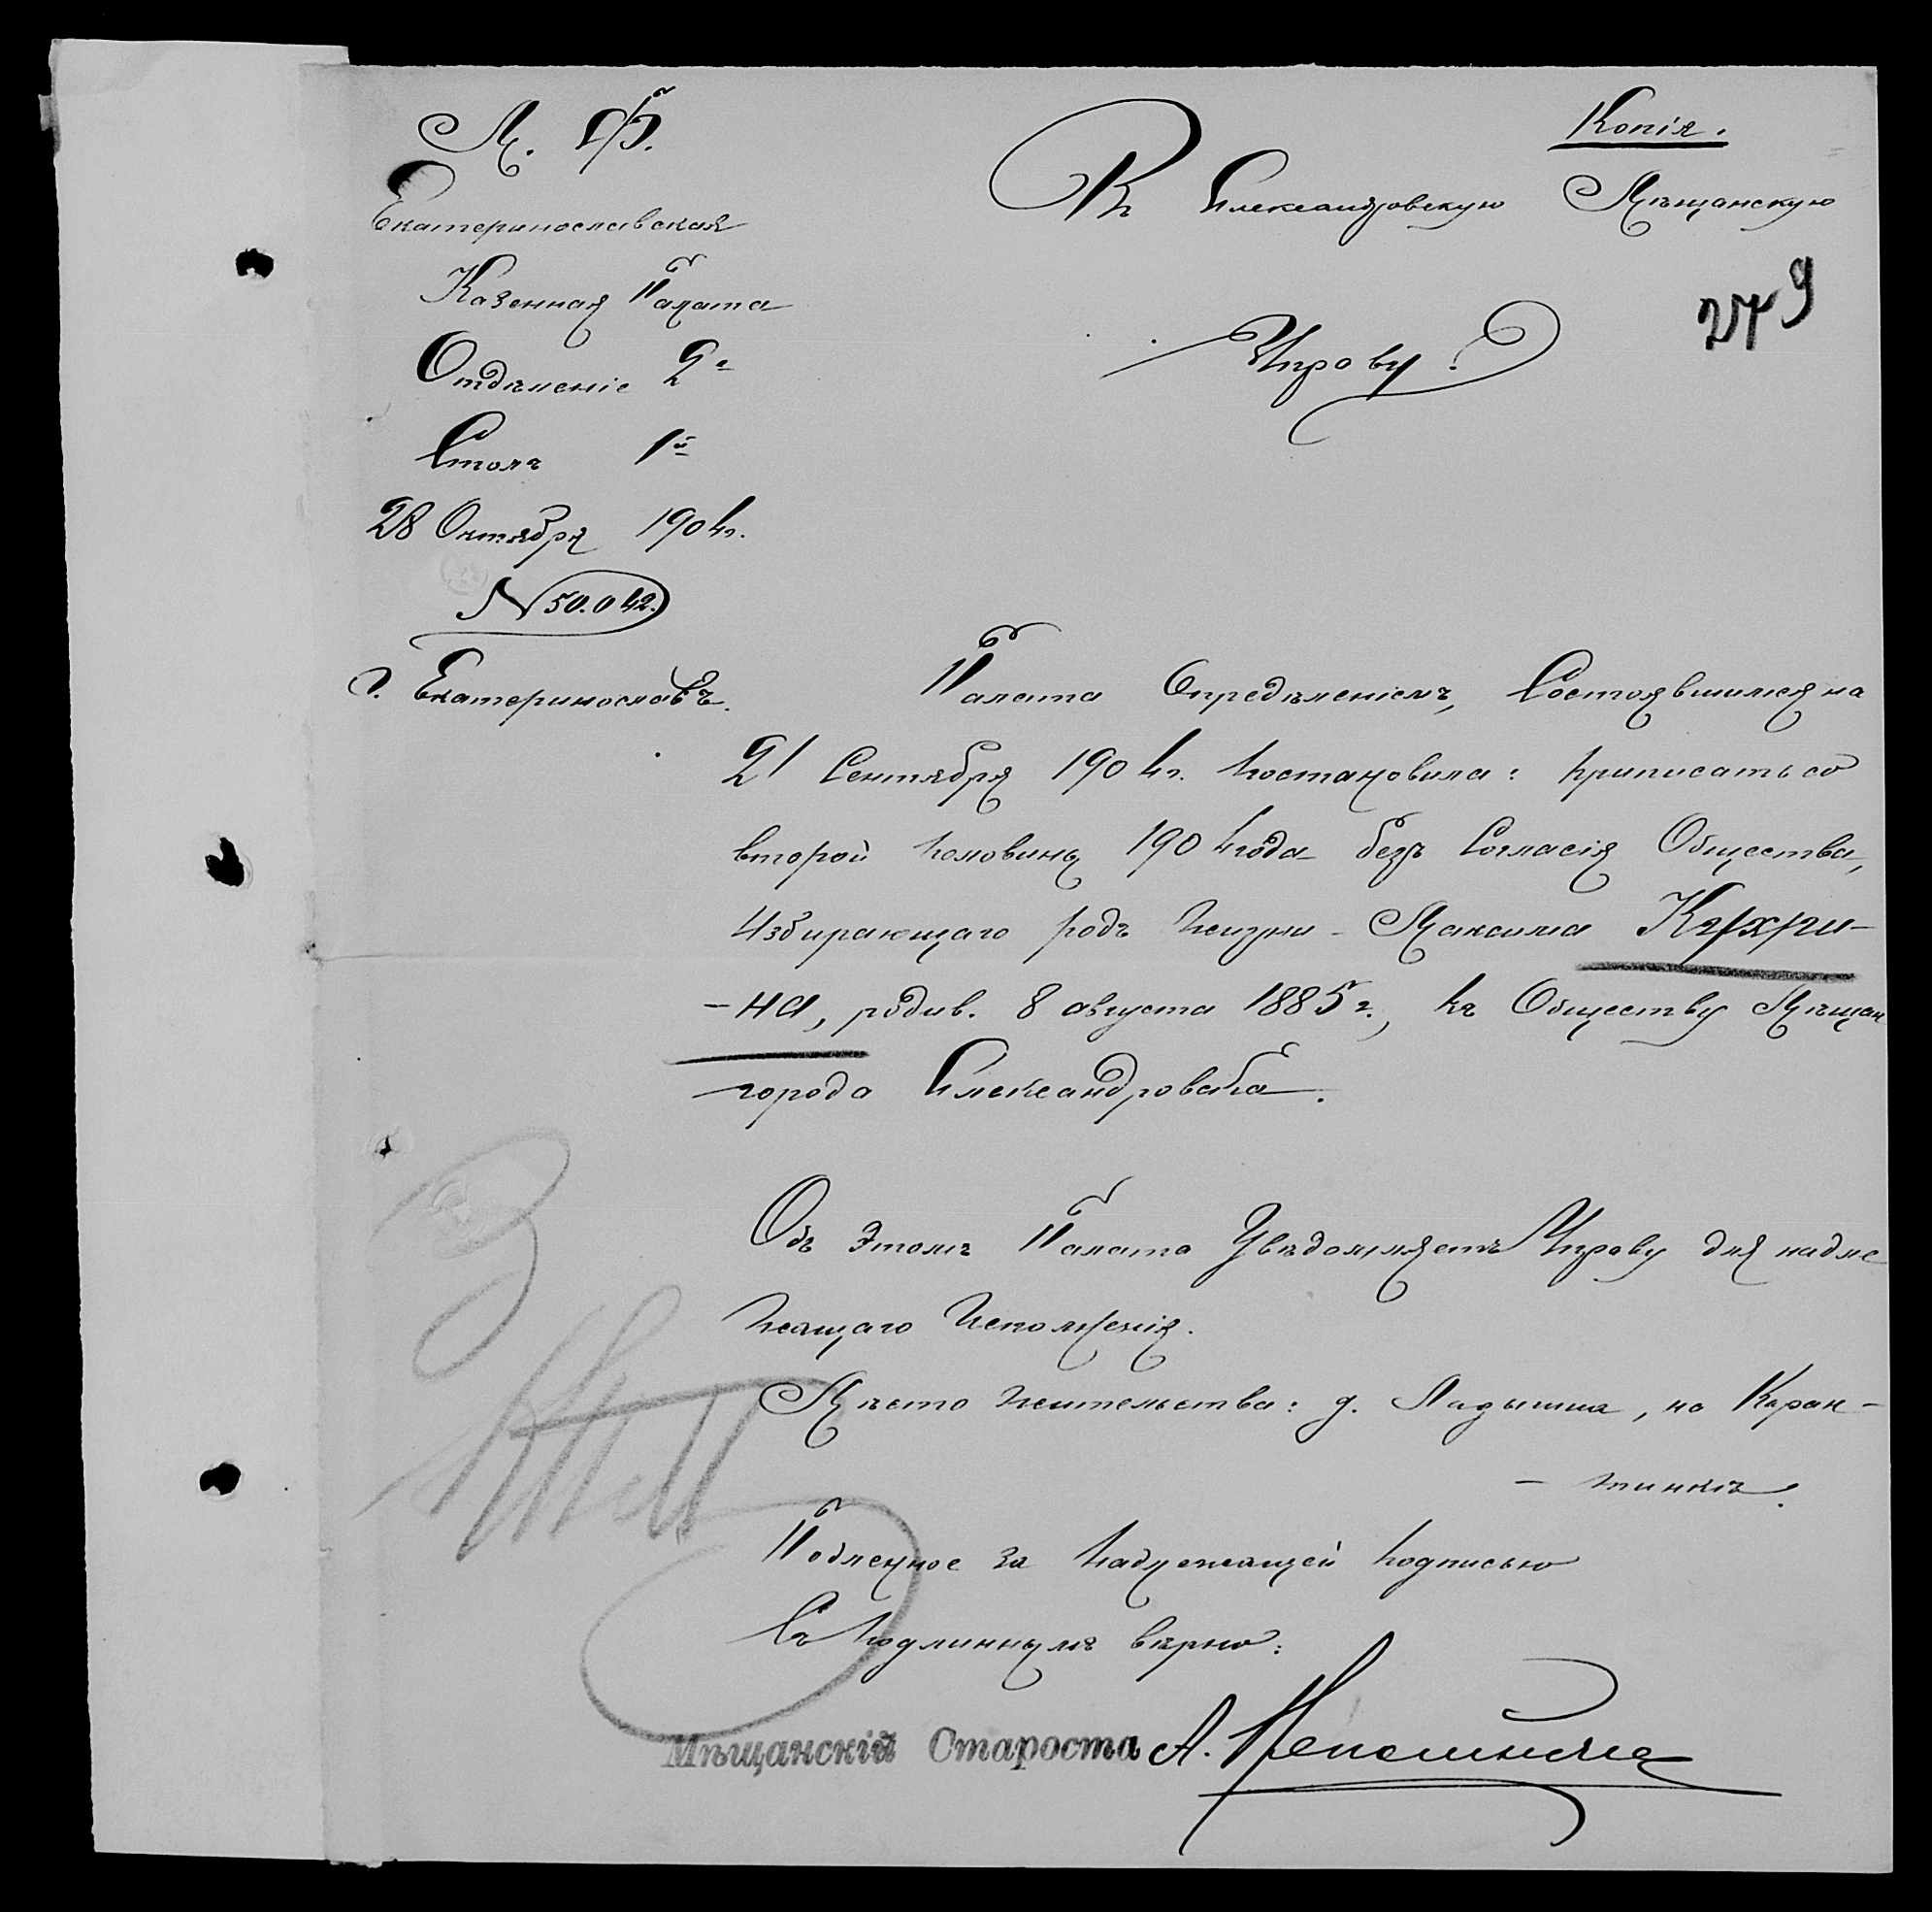 Копія.
М. Ф.
Екатеринославская
Казенная Палата
Отдѣленіе 2е
Столъ 1й
28 Октября 1904г.
N 50.042.
г. Екатеринославъ.
Въ Александровскую Мѣщанскую
Управу.
279
Палата Опредѣленіемъ, Состоявшимся на
21 Сентября 1904г. постановила: приписать со
второй половины 1904 года безъ Согласія Общества,
Избирающаго родъ жизни - Максима
-на, родив. 8 августа 1885 г., къ Обществу Мѣщан
города Александровска.
Объ Этомъ Палата Увѣдомляетъ Управу для надле
жащаго Исполненія.
Мѣсто жительства: д. Ладыгина, на Каран-
- тинкѣ.
Подленное за надлежащей подписью
Съ подлиннымъ вѣрно:
Мѣщанскій Староста А.